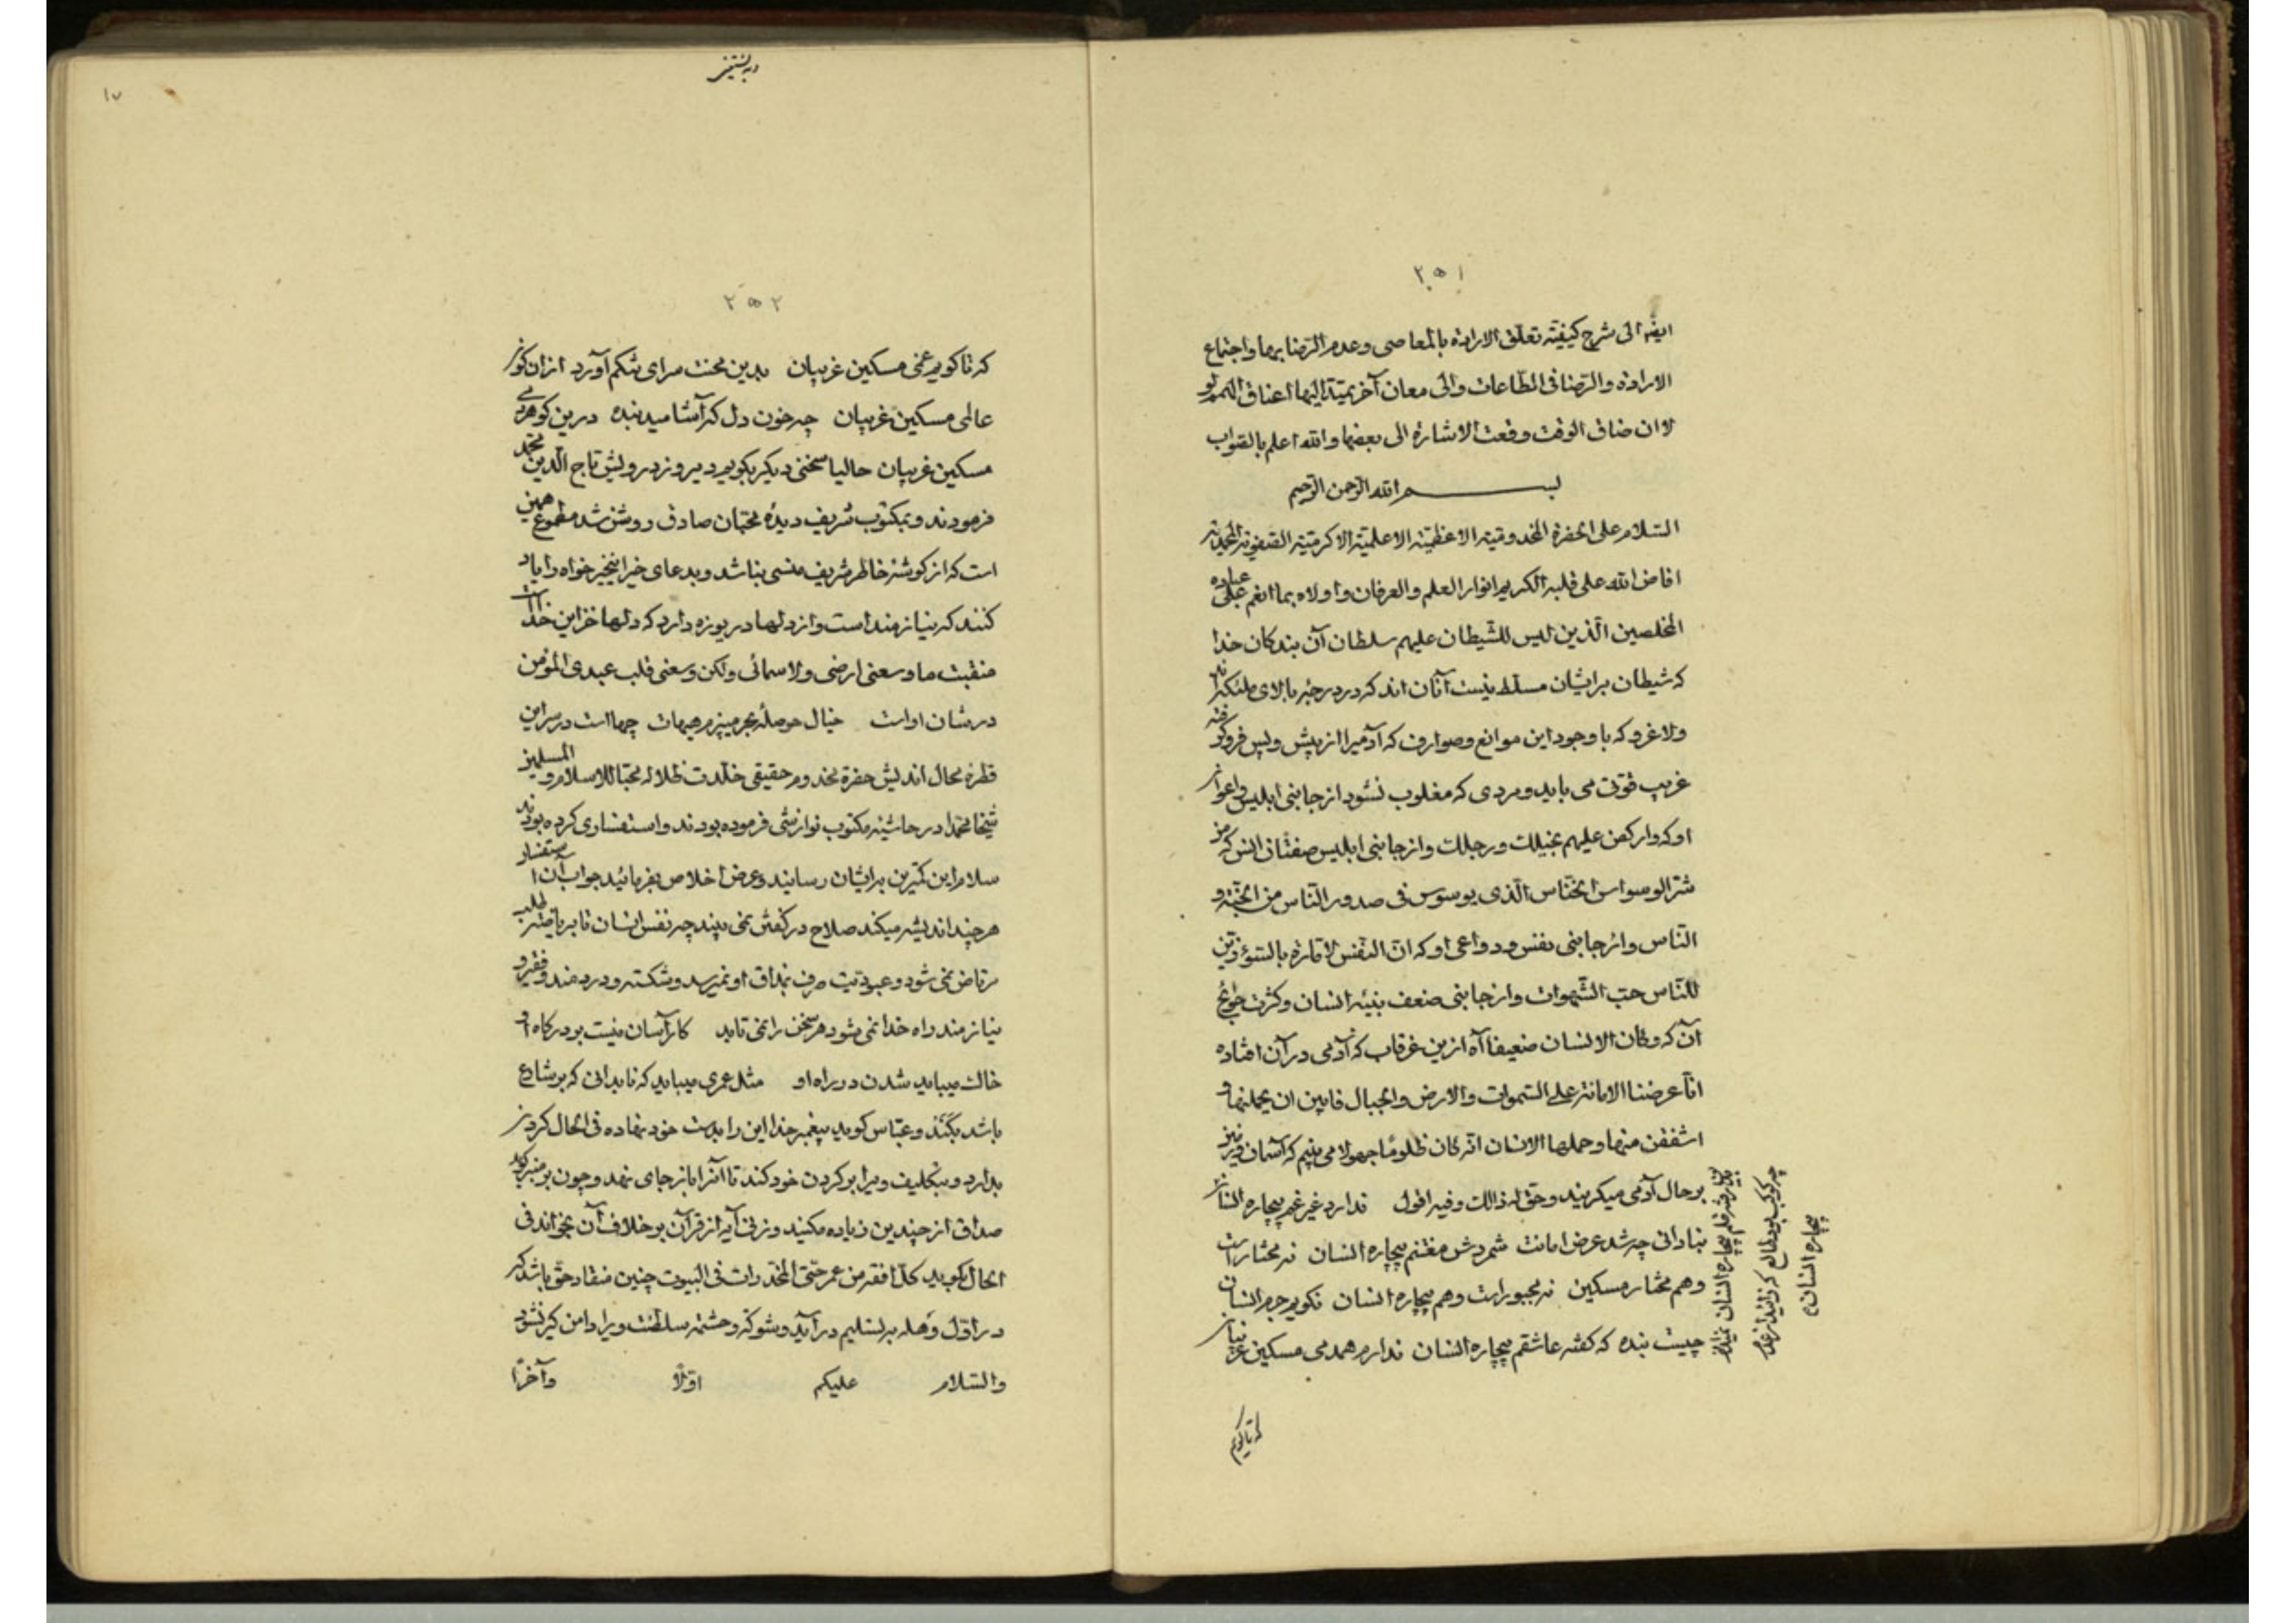 ۲۵۱
ایضا الی شرح کیفیّة تعلّق الارادة بالمعاصی وعدم الرّضا بها واجتماع
الارادة والرّضا فی الطّاعات والی معان آخر یمتدّ الیها اعناق
لا ان ضاق الوقت وقعت الاشارة الی بعضها والله اعلم بالصّواب
بسم الله الرّحمن الرّحیم
السّلام علی الحضرة المخدومیّة الاعظمیّة الاعلمیّة الاکرمیّة الصّفویّة المحمّدیّة
افاض الله علی قلبه الکریم انوار العلم والعرفان واولاه بما انعم علی عباده
المخلصین الّذین لیس للشّیطان علیهم سلطان آن بندکان خدا
که شیطان برایشان مسلّط نیست آنان اند که در درجه بالای ملئکه اند
ولا غرو که با وجود این موانع وصوارف که آدمیرا از پیش وپس فروکرفته
غریب قوّتی می باید ومردی که مغلوب نشود از جانبی ابلیس واعوان
او که واركض علیهم بخیلك ورجلك واز جانبی ابلیس صفتان انس که من
شرّ الوسواس الخنّاس الّذی یوسوس فی صدور النّاس من الجنّة و
النّاس واز جانبی نفس ودواعی او که انّ النّفس لامّارة بالسّوء زیّن
للنّاس حبّ الشّهوات واز جانبی ضعف بنیه انسان وکثرت حوایج
آن که وکان الانسان ضعیفا آه ازین غرقاب که آدمی در آن افتاده
انّا عرضنا الامانة علی السّموات والارض والجبال فابین ان یحملنها و
اشفقن منها وحملها الانسان انّه کان ظلومًا جهولا می بینم که آسمان وزمین
بر حال آدمی میکریند وحقّ له ذالك وفیه اقول ندارد غیر غم بیچاره انسان
بنادانی چه شد عرض امانت شمردش مغتنم بیچاره انسان نه مختار است
وهم مختار مسکین نه مجبور است وهم بیچاره انسان نکویم جرم انسان
چیست بنده که کفته عاشقم بیچاره انسان ندارم همدمی مسکین غریبان
رفته قلم بیچاره انسان
چه کوکب بود طالع کز
بیچاره انسان
که تا کویم
۱۷
۲۵۲
که تا کویم غمی مسکین غریبان بدین محنت سرای تنکم آورد از آن کوی
عالمی مسکین غریبان چه خون دل که آشامیده بنده درین کو همدمی
مسکین غریبان حالیا سخنی دیکر بکویم دیروز درویش تاج الدّین محمّد
فرمودند وبمکتوب شریف دیدۀ محبّان صادق روشن شد مطموع همین
است که از کوشه خاطر شریف منسی نباشد وبدعای خیر این خیر خواه را یاد
کنند که نیازمند است واز دلها دریوزه دارد که دلها خزاین خداست
منقبت ما وسعنی ارضی ولا سمائی ولکن وسعنی قلب عبدی المؤمن
در شان او است خیال حوصلۀ بحر میپزم هیهات چهاست در سر این
قطرۀ محال اندیش حضرة مخدوم حقیقی خلّدت ظلاله محبّا للاسلام والمسلمین
شیخا محمّدا در حاشیه مکتوب نوازشی فرموده بودند واستفساری کرده بودند
سلام این کمترین برایشان رسانید وعرض اخلاص بفرمائید جواب آن استفسار
هر چند اندیشه میکند صلاح در کفتن نمی بیند چه نفس انسان تا بریاضت طلب
مرتاض نمی شود وعبودیّت صرف بمذاق او نمیرسد وشکسته ودردمند وفقیر و
نیازمند راه خدا نمی شود هر سخن را نمی تابد کار آسان نیست بر درکاه او
خاك میباید شدن در راه او مثل عمری میباید که نابدانی که بر شارع
باشد بکند وعبّاس کوید پیغمبر خدا این را بدست خود نهاده فی الحال کردن
بدارد وبتکلیف ویرا بر کردن خود کند تا آنرا باز جای نهد وچون بر منبر کوید
صداق از چندین زیاده مکنید وزنی آیه از قرآن بر خلاف آن بخواند فی
الحال بکوید کلّ افقه من عمر حتّی المخدّرات فی البیوت چنین منقاد حق باشد که
در اوّل وهله به تسلیم در آید وشوکة وحشمة سلطنت ویرا دامن کیر نشود
والسّلام علیکم اوّلًا وآخرًا